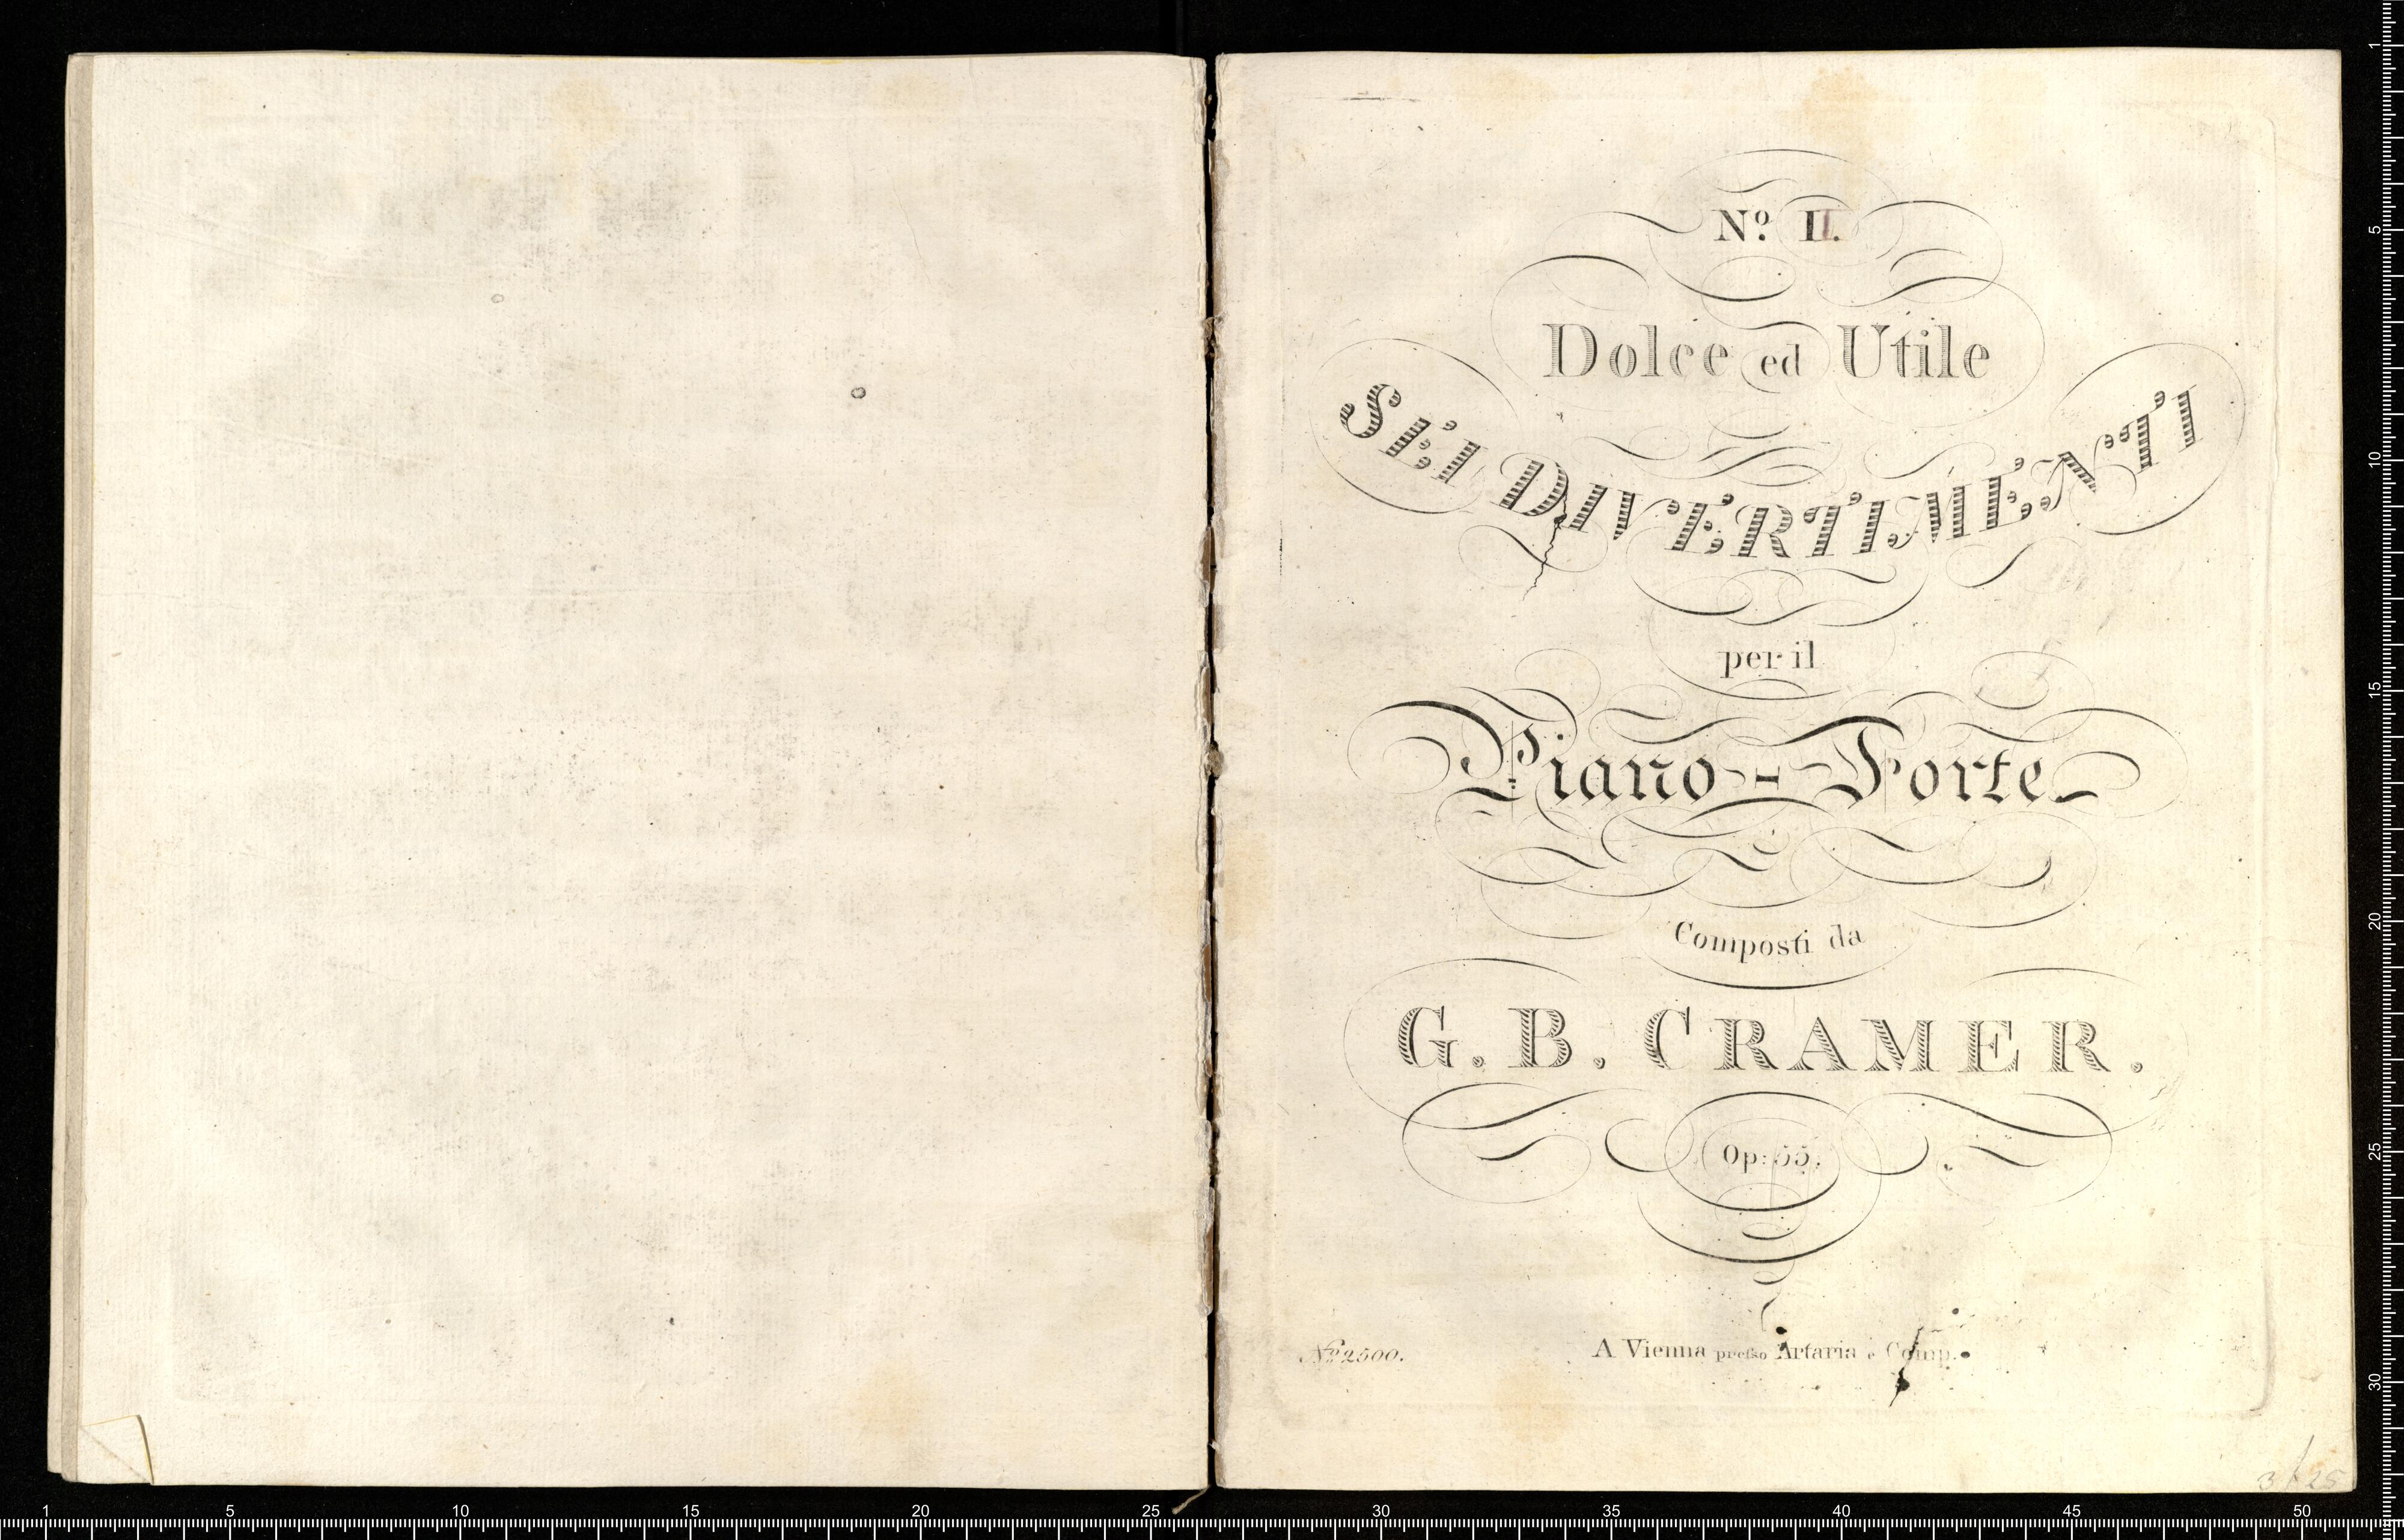 Nº II.
Dolce ed Utile
SEI DIVERTIMENTI
per il
Piano-Forte
Composti da
G. B. CRAMER.
Op: 55.
Nº 2500. A Vienna presso Artaria e Comp.
1 5 10 15 20 25 30
1 5 10 15 20 25 30 35 40 45 50